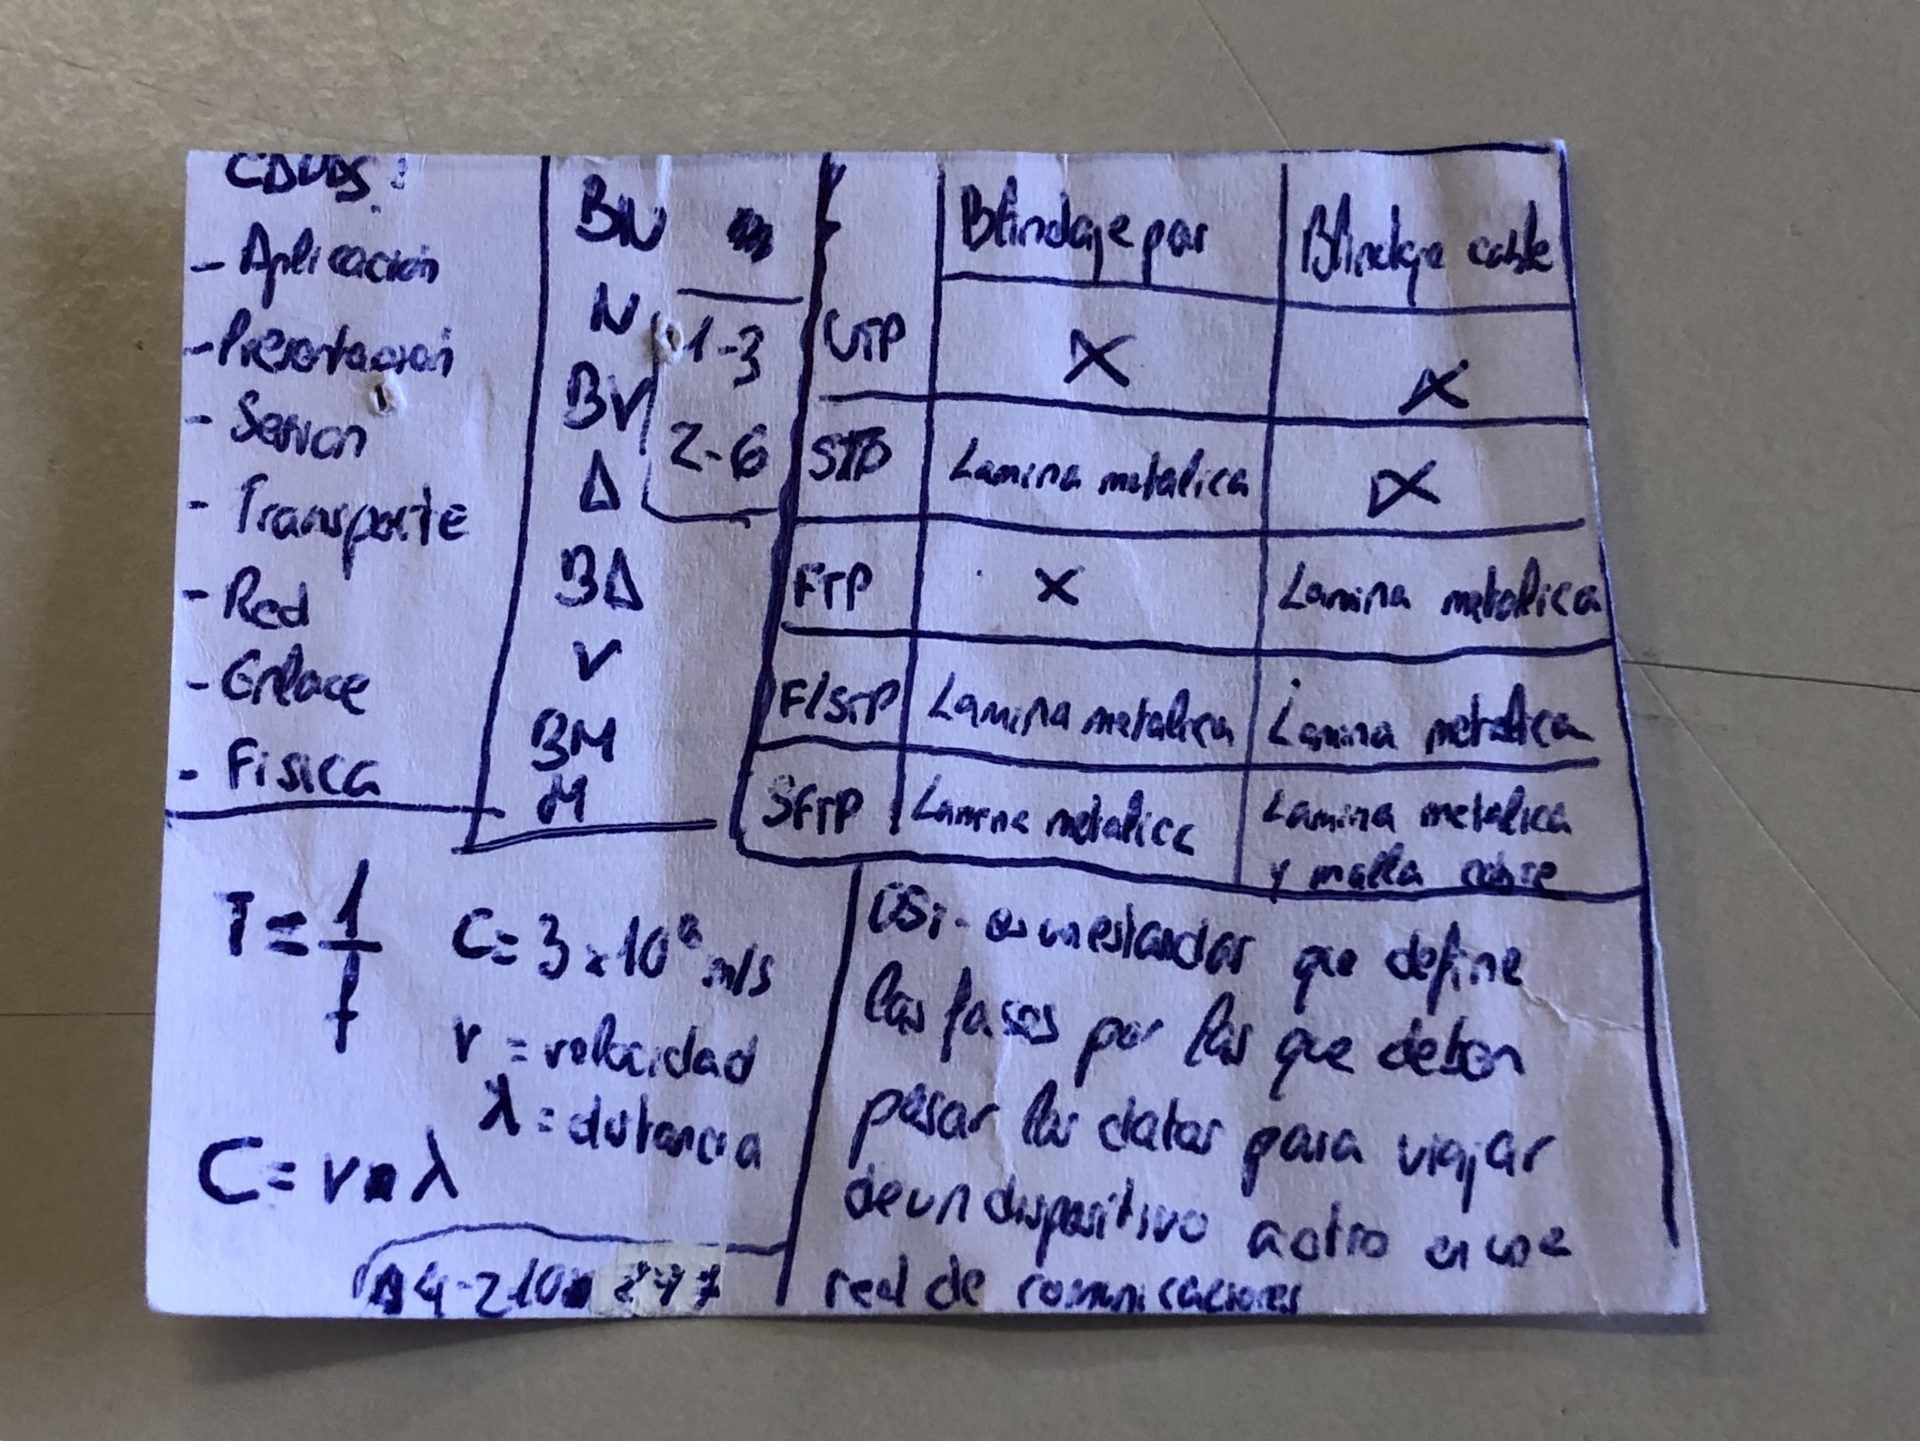 - Aplicación
- Presentación
- Sesion
- Transporte
- Red
- Enlace
- Fisica
BN
N
BV
Δ
BΔ
V
BM
M
1-3
2-6
Blindaje par
Blindaje cable
UTP X X
STP Lamina metalica X
FTP X Lamina metalica
F/STP Lamina metalica Lamina metalica
SFTP Lamina metalica Lamina metalica
y malla cobre
T = 1/f
C = 3 x 10⁸ m/s
v = velocidad
λ = distancia
C = v · λ
A4-210
OSi - es un estandar que define
las fases por las que deben
pasar los datos para viajar
de un dispositivo a otro en una
red de comunicaciones